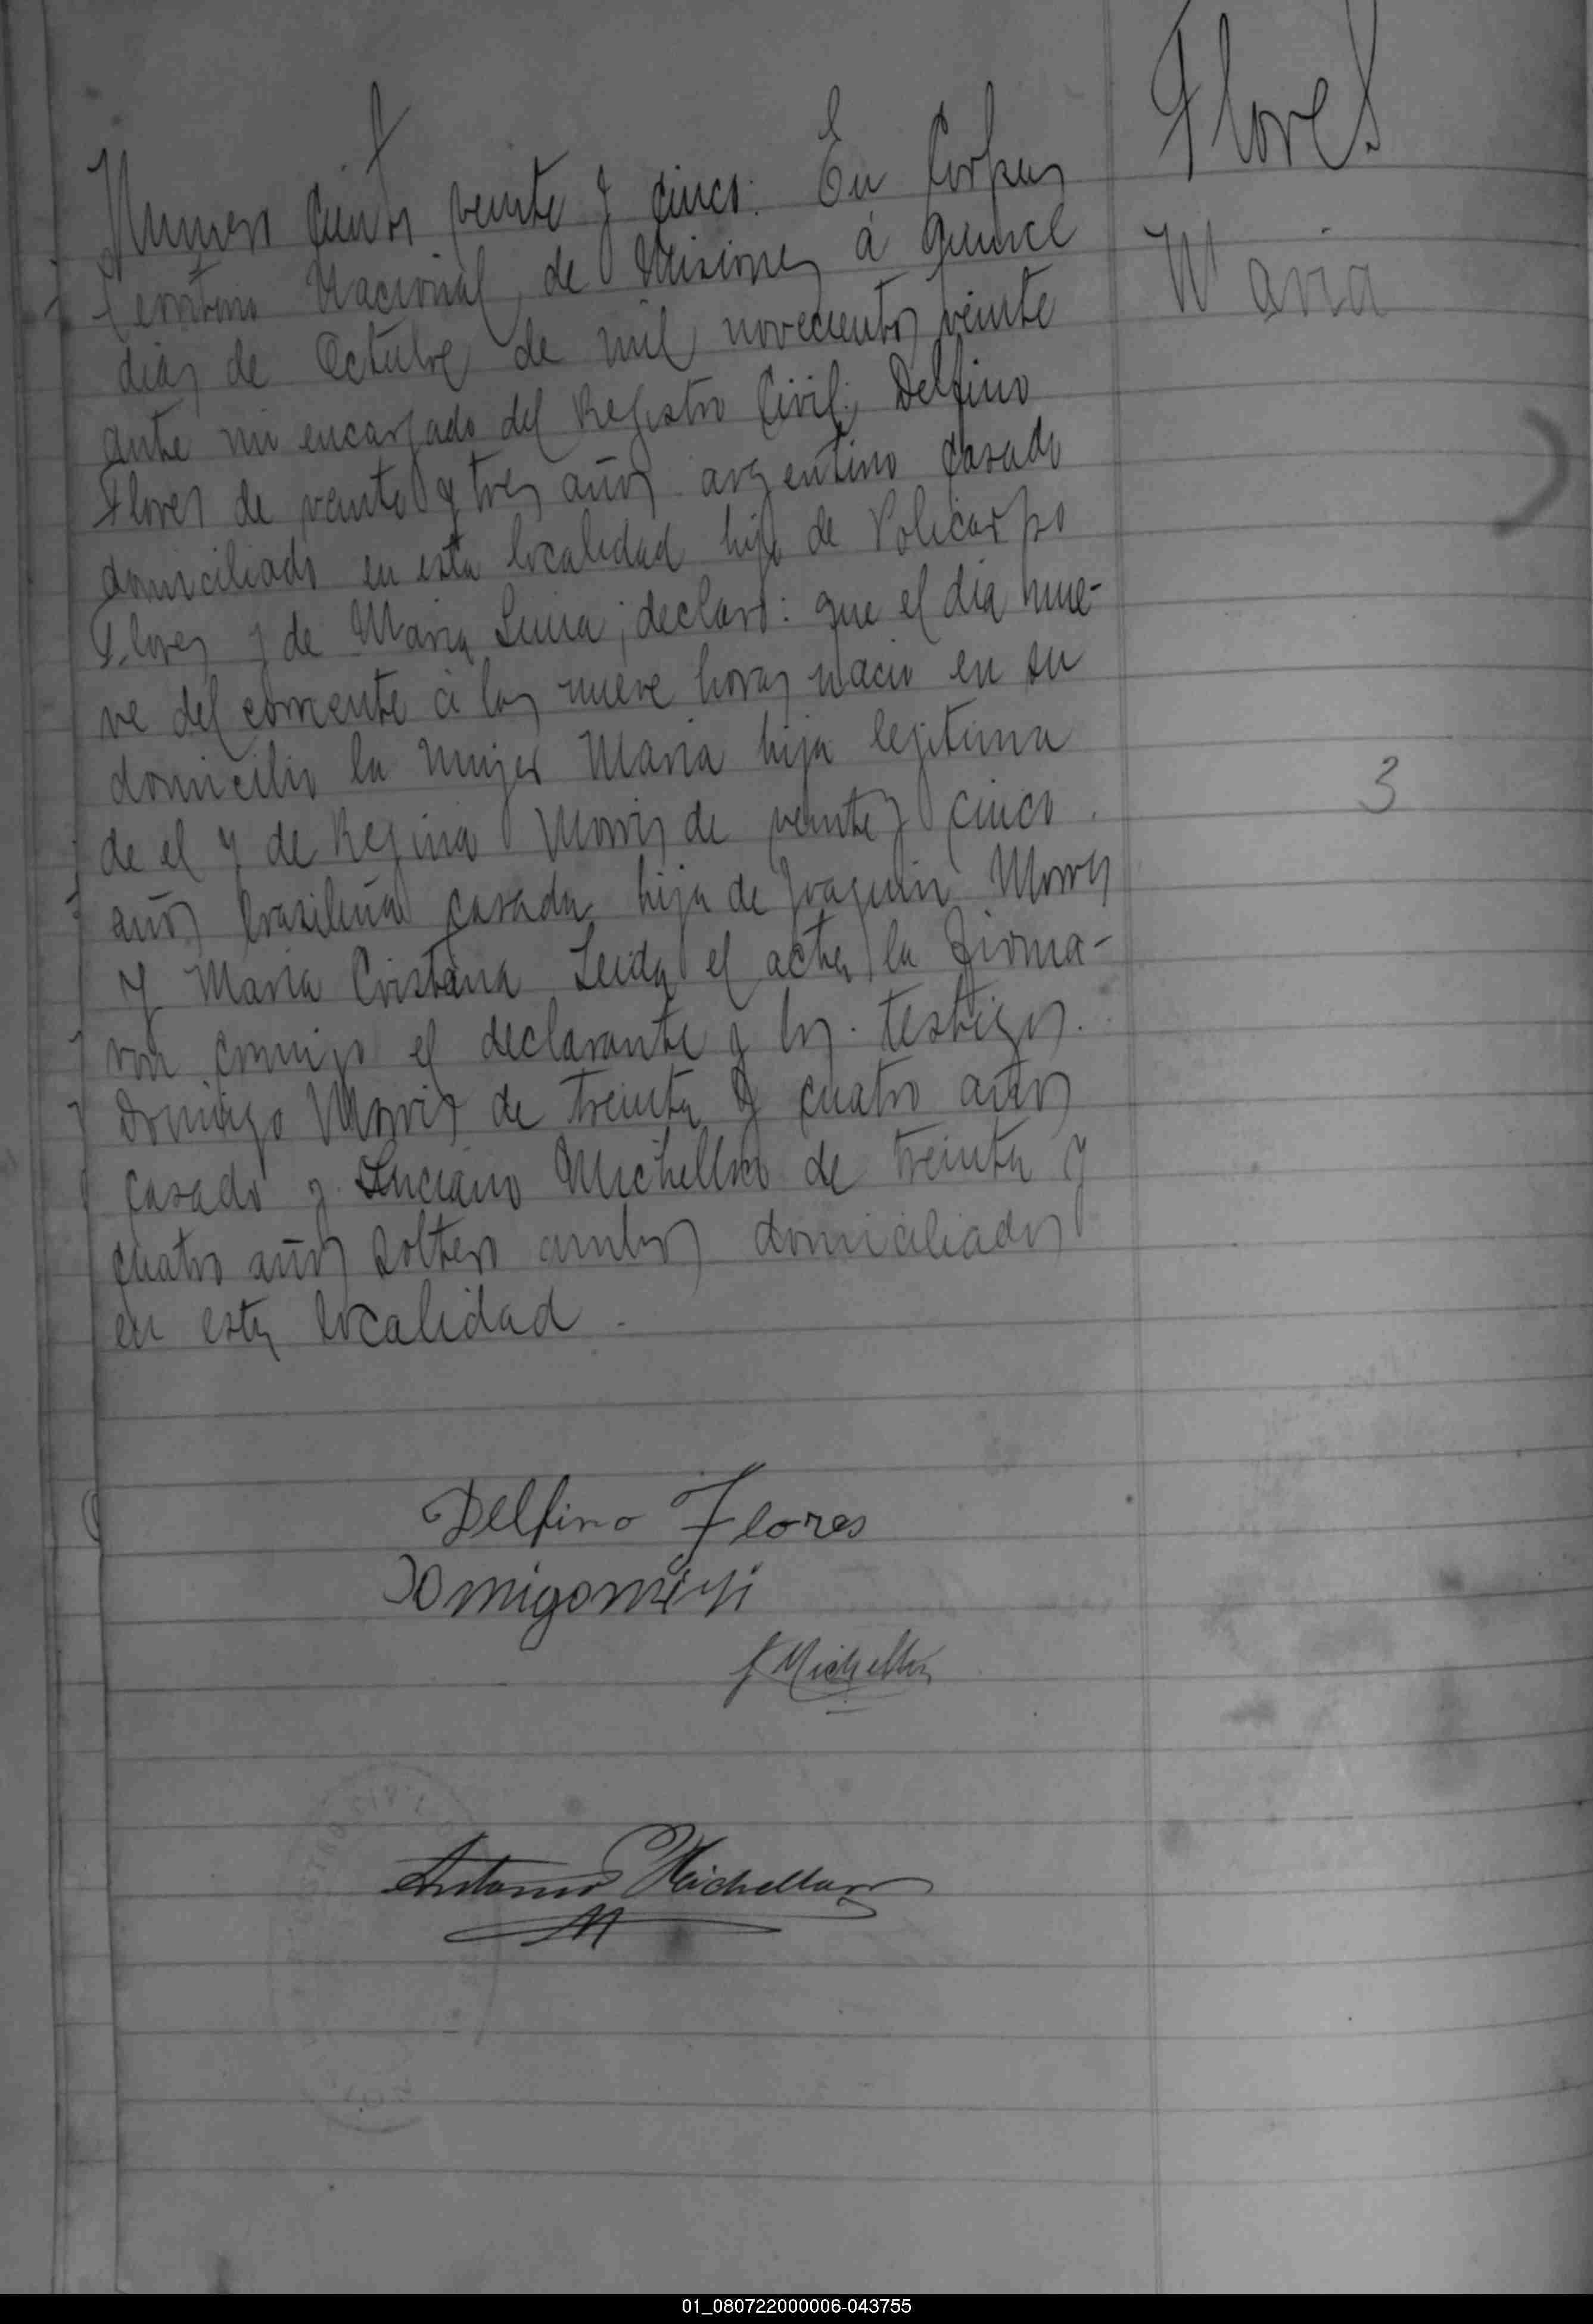 Flores
Maria
Numero ciento veinte y cinco. En Corpus
Territorio Nacional de Misiones á quince
dias de Octubre de mil novecientos veinte
ante mi encargado del Registro Civil; Delfino
Flores de veinte y tres años argentino casado
domiciliado en esta localidad hijo de Policarpo
Flores y de Maria Luisa; declaró: que el dia nue-
ve del corriente á las nueve horas nació en su
domicilio la mujer Maria hija legitima
de el y de Regina Morris de veinte y cinco
3
años brasileña casada hija de Joaquin Morris
y Maria Cristana Leida el acta la firma-
ron conmigo el declarante y los testigos.
Domingo Morris de treinta y cuatro años
casado y Luciano Michellon de treinta y
cuatro años soltero ambos domiciliados
en esta localidad.
Delfino Flores
Domigo
Michellon
Antonio Michellon
01_080722000006-043755